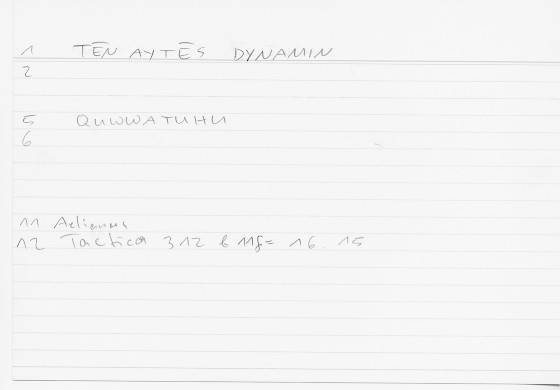 1 TĒN AYTĒS DYNAMIN
2
5 QUWWATUHU
6
11 Aelianus
12 Tactica 312 b 11f = 16.15